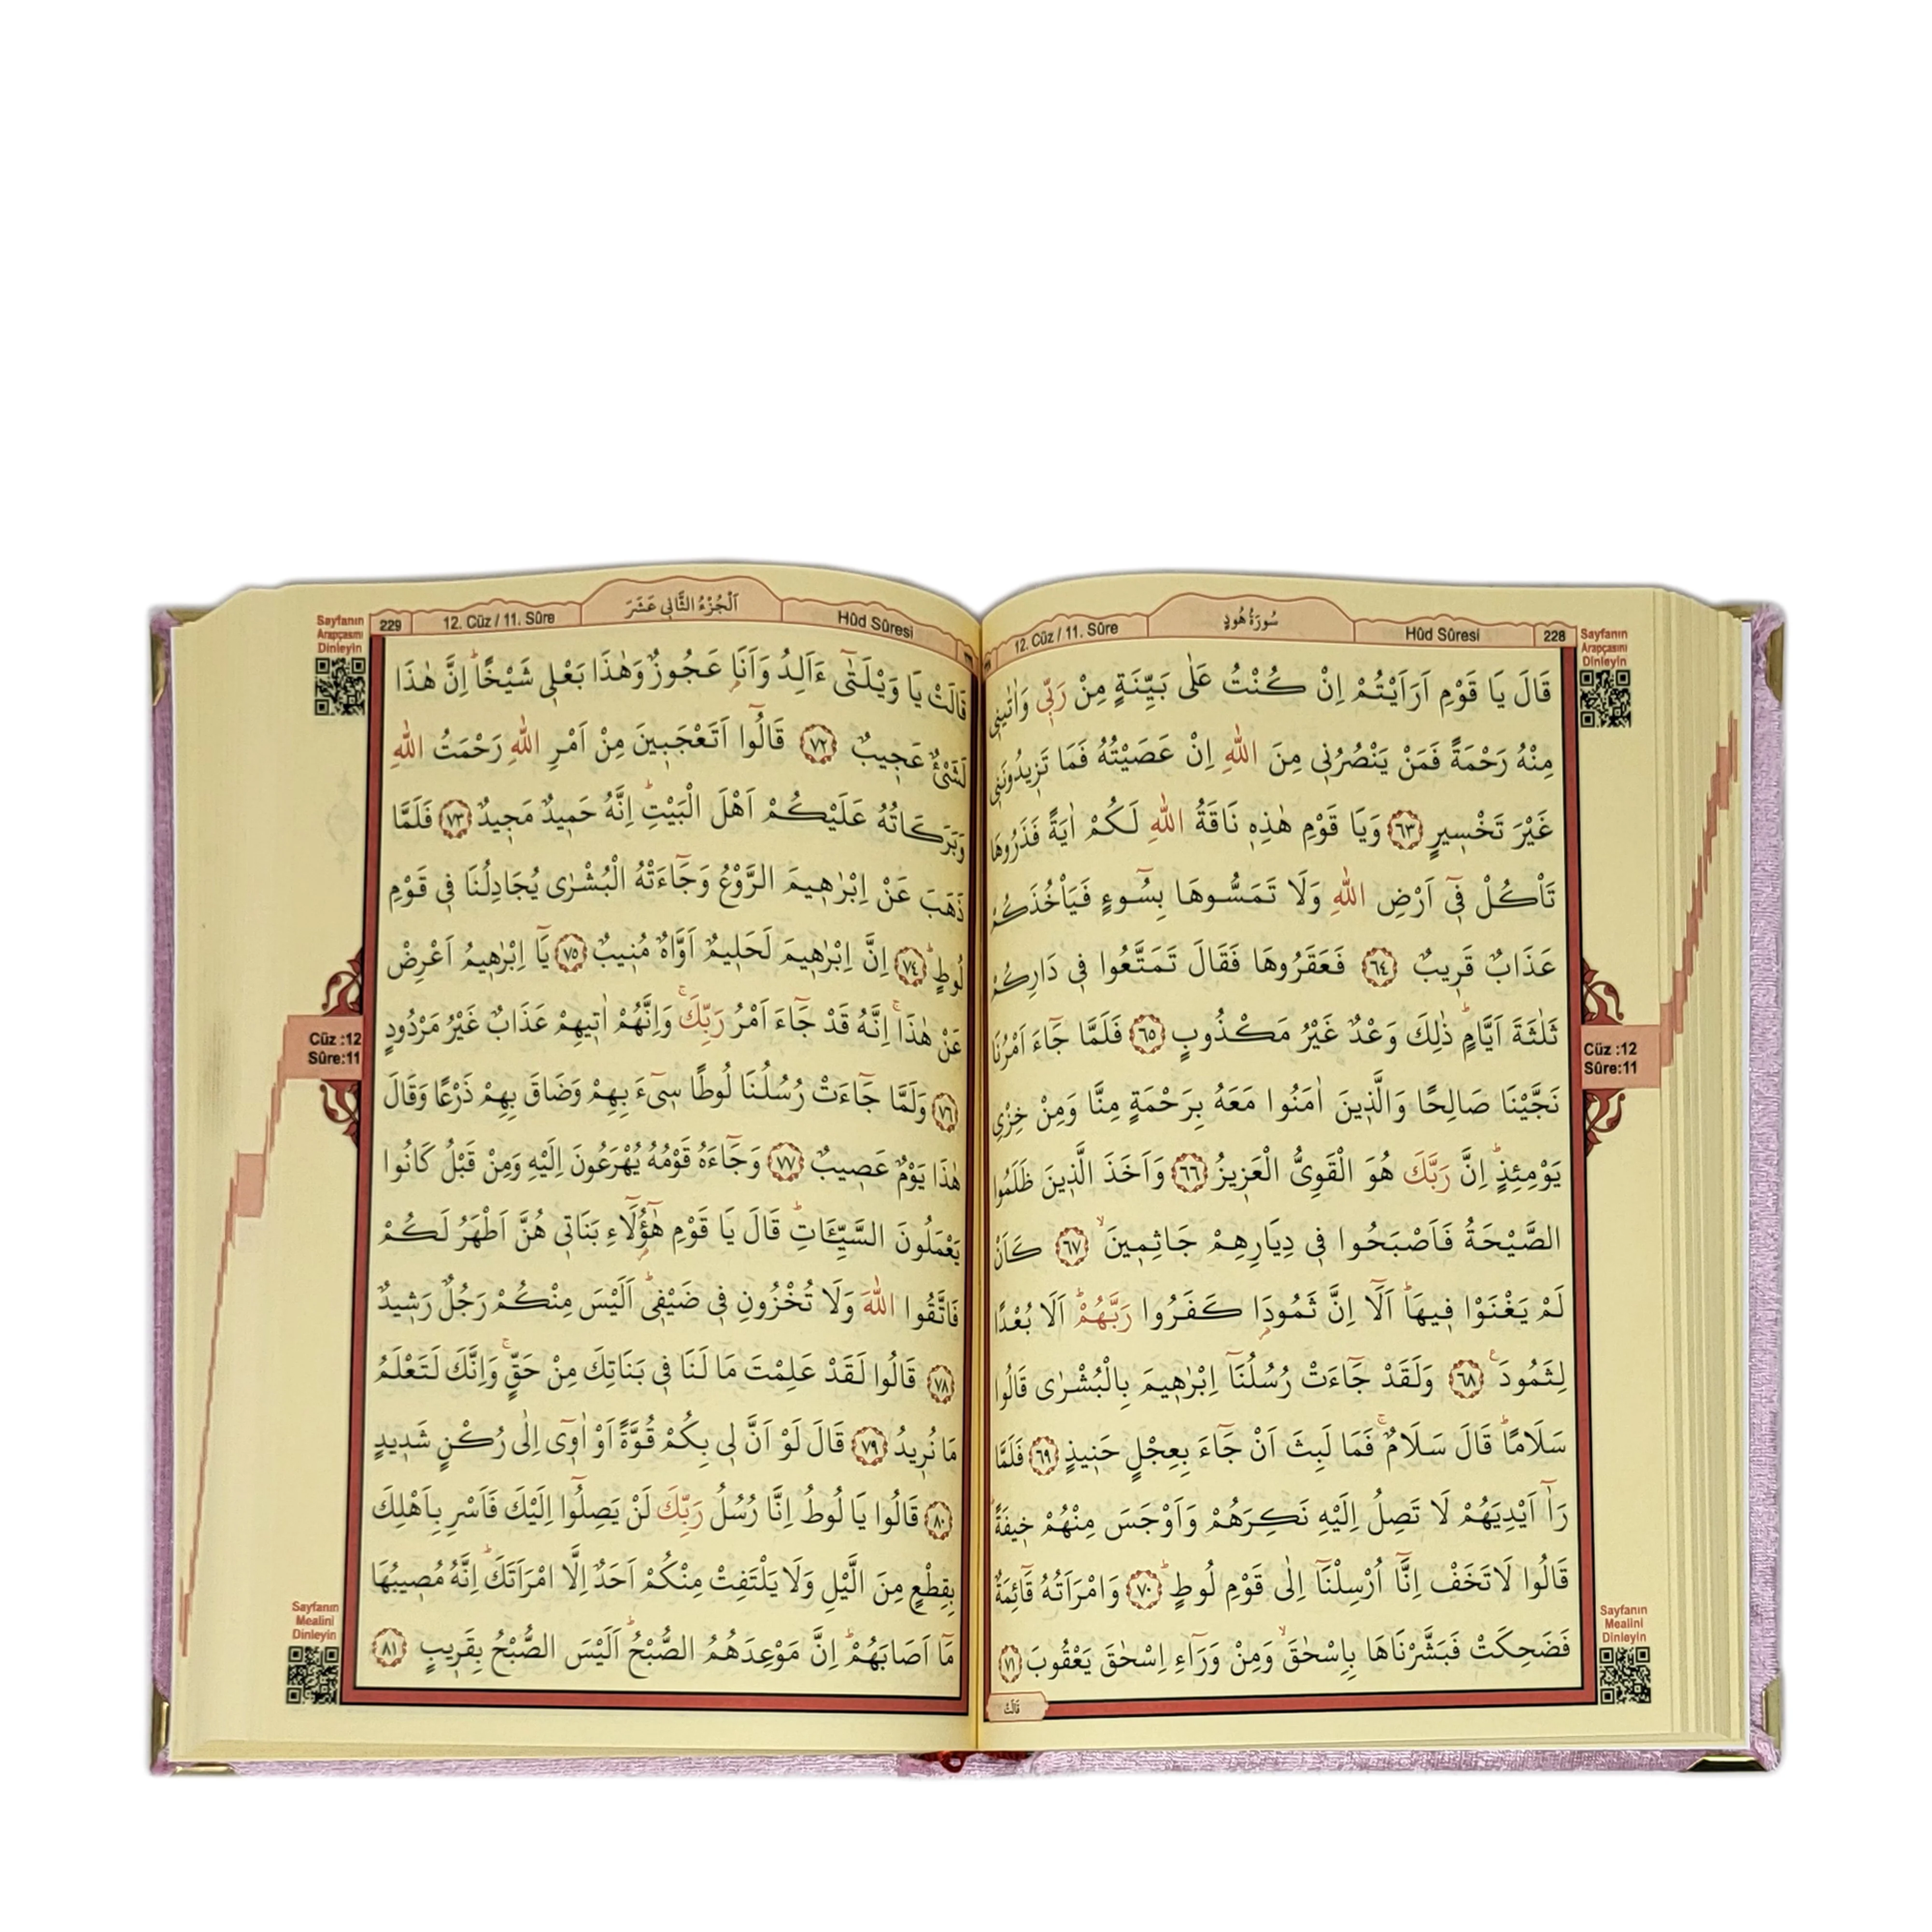 Sayfanın
Arapçasını
Dinleyin
228
Hûd Sûresi
سُورَةُ هُودٍ
12. Cüz / 11. Sûre
قَالَ يَا قَوْمِ اَرَاَيْتُمْ اِنْ كُنْتُ عَلٰى بَيِّنَةٍ مِنْ رَبّٖى وَاٰتٰينٖى
مِنْهُ رَحْمَةً فَمَنْ يَنْصُرُنٖى مِنَ اللّٰهِ اِنْ عَصَيْتُهُ فَمَا تَزٖيدُونَنٖى
غَيْرَ تَخْسٖيرٍ ﴿٦٣﴾ وَيَا قَوْمِ هٰذِهٖ نَاقَةُ اللّٰهِ لَكُمْ اٰيَةً فَذَرُوهَا
تَاْكُلْ فٖٓى اَرْضِ اللّٰهِ وَلَا تَمَسُّوهَا بِسُٓوءٍ فَيَاْخُذَكُمْ
عَذَابٌ قَرٖيبٌ ﴿٦٤﴾ فَعَقَرُوهَا فَقَالَ تَمَتَّعُوا فٖى دَارِكُمْ
ثَلٰثَةَ اَيَّامٍؕ ذٰلِكَ وَعْدٌ غَيْرُ مَكْذُوبٍ ﴿٦٥﴾ فَلَمَّا جَٓاءَ اَمْرُنَا
نَجَّيْنَا صَالِحًا وَالَّذٖينَ اٰمَنُوا مَعَهُ بِرَحْمَةٍ مِنَّا وَمِنْ خِزْىِ
يَوْمِئِذٍؕ اِنَّ رَبَّكَ هُوَ الْقَوِىُّ الْعَزٖيزُ ﴿٦٦﴾ وَاَخَذَ الَّذٖينَ ظَلَمُوا
الصَّيْحَةُ فَاَصْبَحُوا فٖى دِيَارِهِمْ جَاثِمٖينَۙ ﴿٦٧﴾ كَاَنْ
لَمْ يَغْنَوْا فٖيهَاؕ اَلَٓا اِنَّ ثَمُودَا كَفَرُوا رَبَّهُمْؕ اَلَا بُعْدًا
لِثَمُودَ ﴿٦٨﴾ وَلَقَدْ جَٓاءَتْ رُسُلُنَٓا اِبْرٰهٖيمَ بِالْبُشْرٰى قَالُوا
سَلَامًاؕ قَالَ سَلَامٌۚ فَمَا لَبِثَ اَنْ جَٓاءَ بِعِجْلٍ حَنٖيذٍ ﴿٦٩﴾ فَلَمَّا
رَآٰ اَيْدِيَهُمْ لَا تَصِلُ اِلَيْهِ نَكِرَهُمْ وَاَوْجَسَ مِنْهُمْ خٖيفَةًؕ
قَالُوا لَا تَخَفْ اِنَّٓا اُرْسِلْنَٓا اِلٰى قَوْمِ لُوطٍؕ ﴿٧٠﴾ وَامْرَاَتُهُ قَٓائِمَةٌ
فَضَحِكَتْ فَبَشَّرْنَاهَا بِاِسْحٰقَۙ وَمِنْ وَرَٓاءِ اِسْحٰقَ يَعْقُوبَ ﴿٧١﴾
قَالَتْ
Cüz :12
Sûre:11
Sayfanın
Mealini
Dinleyin
Hûd Sûresi
اَلْجُزْءُ الثَّانٖى عَشَرَ
12. Cüz / 11. Sûre
229
Sayfanın
Arapçasını
Dinleyin
قَالَتْ يَا وَيْلَتٰٓى ءَاَلِدُ وَاَنَا عَجُوزٌ وَهٰذَا بَعْلٖى شَيْخًاؕ اِنَّ هٰذَا
لَشَىْءٌ عَجٖيبٌ ﴿٧٢﴾ قَالُٓوا اَتَعْجَبٖينَ مِنْ اَمْرِ اللّٰهِ رَحْمَتُ اللّٰهِ
وَبَرَكَاتُهُ عَلَيْكُمْ اَهْلَ الْبَيْتِؕ اِنَّهُ حَمٖيدٌ مَجٖيدٌ ﴿٧٣﴾ فَلَمَّا
ذَهَبَ عَنْ اِبْرٰهٖيمَ الرَّوْعُ وَجَٓاءَتْهُ الْبُشْرٰى يُجَادِلُنَا فٖى قَوْمِ
لُوطٍؕ ﴿٧٤﴾ اِنَّ اِبْرٰهٖيمَ لَحَلٖيمٌ اَوَّاهٌ مُنٖيبٌ ﴿٧٥﴾ يَٓا اِبْرٰهٖيمُ اَعْرِضْ
عَنْ هٰذَاۚ اِنَّهُ قَدْ جَٓاءَ اَمْرُ رَبِّكَۚ وَاِنَّهُمْ اٰتٖيهِمْ عَذَابٌ غَيْرُ مَرْدُودٍ
﴿٧٦﴾ وَلَمَّا جَٓاءَتْ رُسُلُنَا لُوطًا سٖٓىءَ بِهِمْ وَضَاقَ بِهِمْ ذَرْعًا وَقَالَ
هٰذَا يَوْمٌ عَصٖيبٌ ﴿٧٧﴾ وَجَٓاءَهُ قَوْمُهُ يُهْرَعُونَ اِلَيْهِ وَمِنْ قَبْلُ كَانُوا
يَعْمَلُونَ السَّيِّـَٔاتِؕ قَالَ يَا قَوْمِ هٰٓؤُ۬لَٓاءِ بَنَاتٖى هُنَّ اَطْهَرُ لَكُمْ
فَاتَّقُوا اللّٰهَ وَلَا تُخْزُونِ فٖى ضَيْفٖىؕ اَلَيْسَ مِنْكُمْ رَجُلٌ رَشٖيدٌ
﴿٧٨﴾ قَالُوا لَقَدْ عَلِمْتَ مَا لَنَا فٖى بَنَاتِكَ مِنْ حَقٍّۚ وَاِنَّكَ لَتَعْلَمُ
مَا نُرٖيدُ ﴿٧٩﴾ قَالَ لَوْ اَنَّ لٖى بِكُمْ قُوَّةً اَوْ اٰوٖٓى اِلٰى رُكْنٍ شَدٖيدٍ
﴿٨٠﴾ قَالُوا يَا لُوطُ اِنَّا رُسُلُ رَبِّكَ لَنْ يَصِلُٓوا اِلَيْكَ فَاَسْرِ بِاَهْلِكَ
بِقِطْعٍ مِنَ الَّيْلِ وَلَا يَلْتَفِتْ مِنْكُمْ اَحَدٌ اِلَّا امْرَاَتَكَؕ اِنَّهُ مُصٖيبُهَا
مَٓا اَصَابَهُمْؕ اِنَّ مَوْعِدَهُمُ الصُّبْحُؕ اَلَيْسَ الصُّبْحُ بِقَرٖيبٍ ﴿٨١﴾
Cüz :12
Sûre:11
Sayfanın
Mealini
Dinleyin